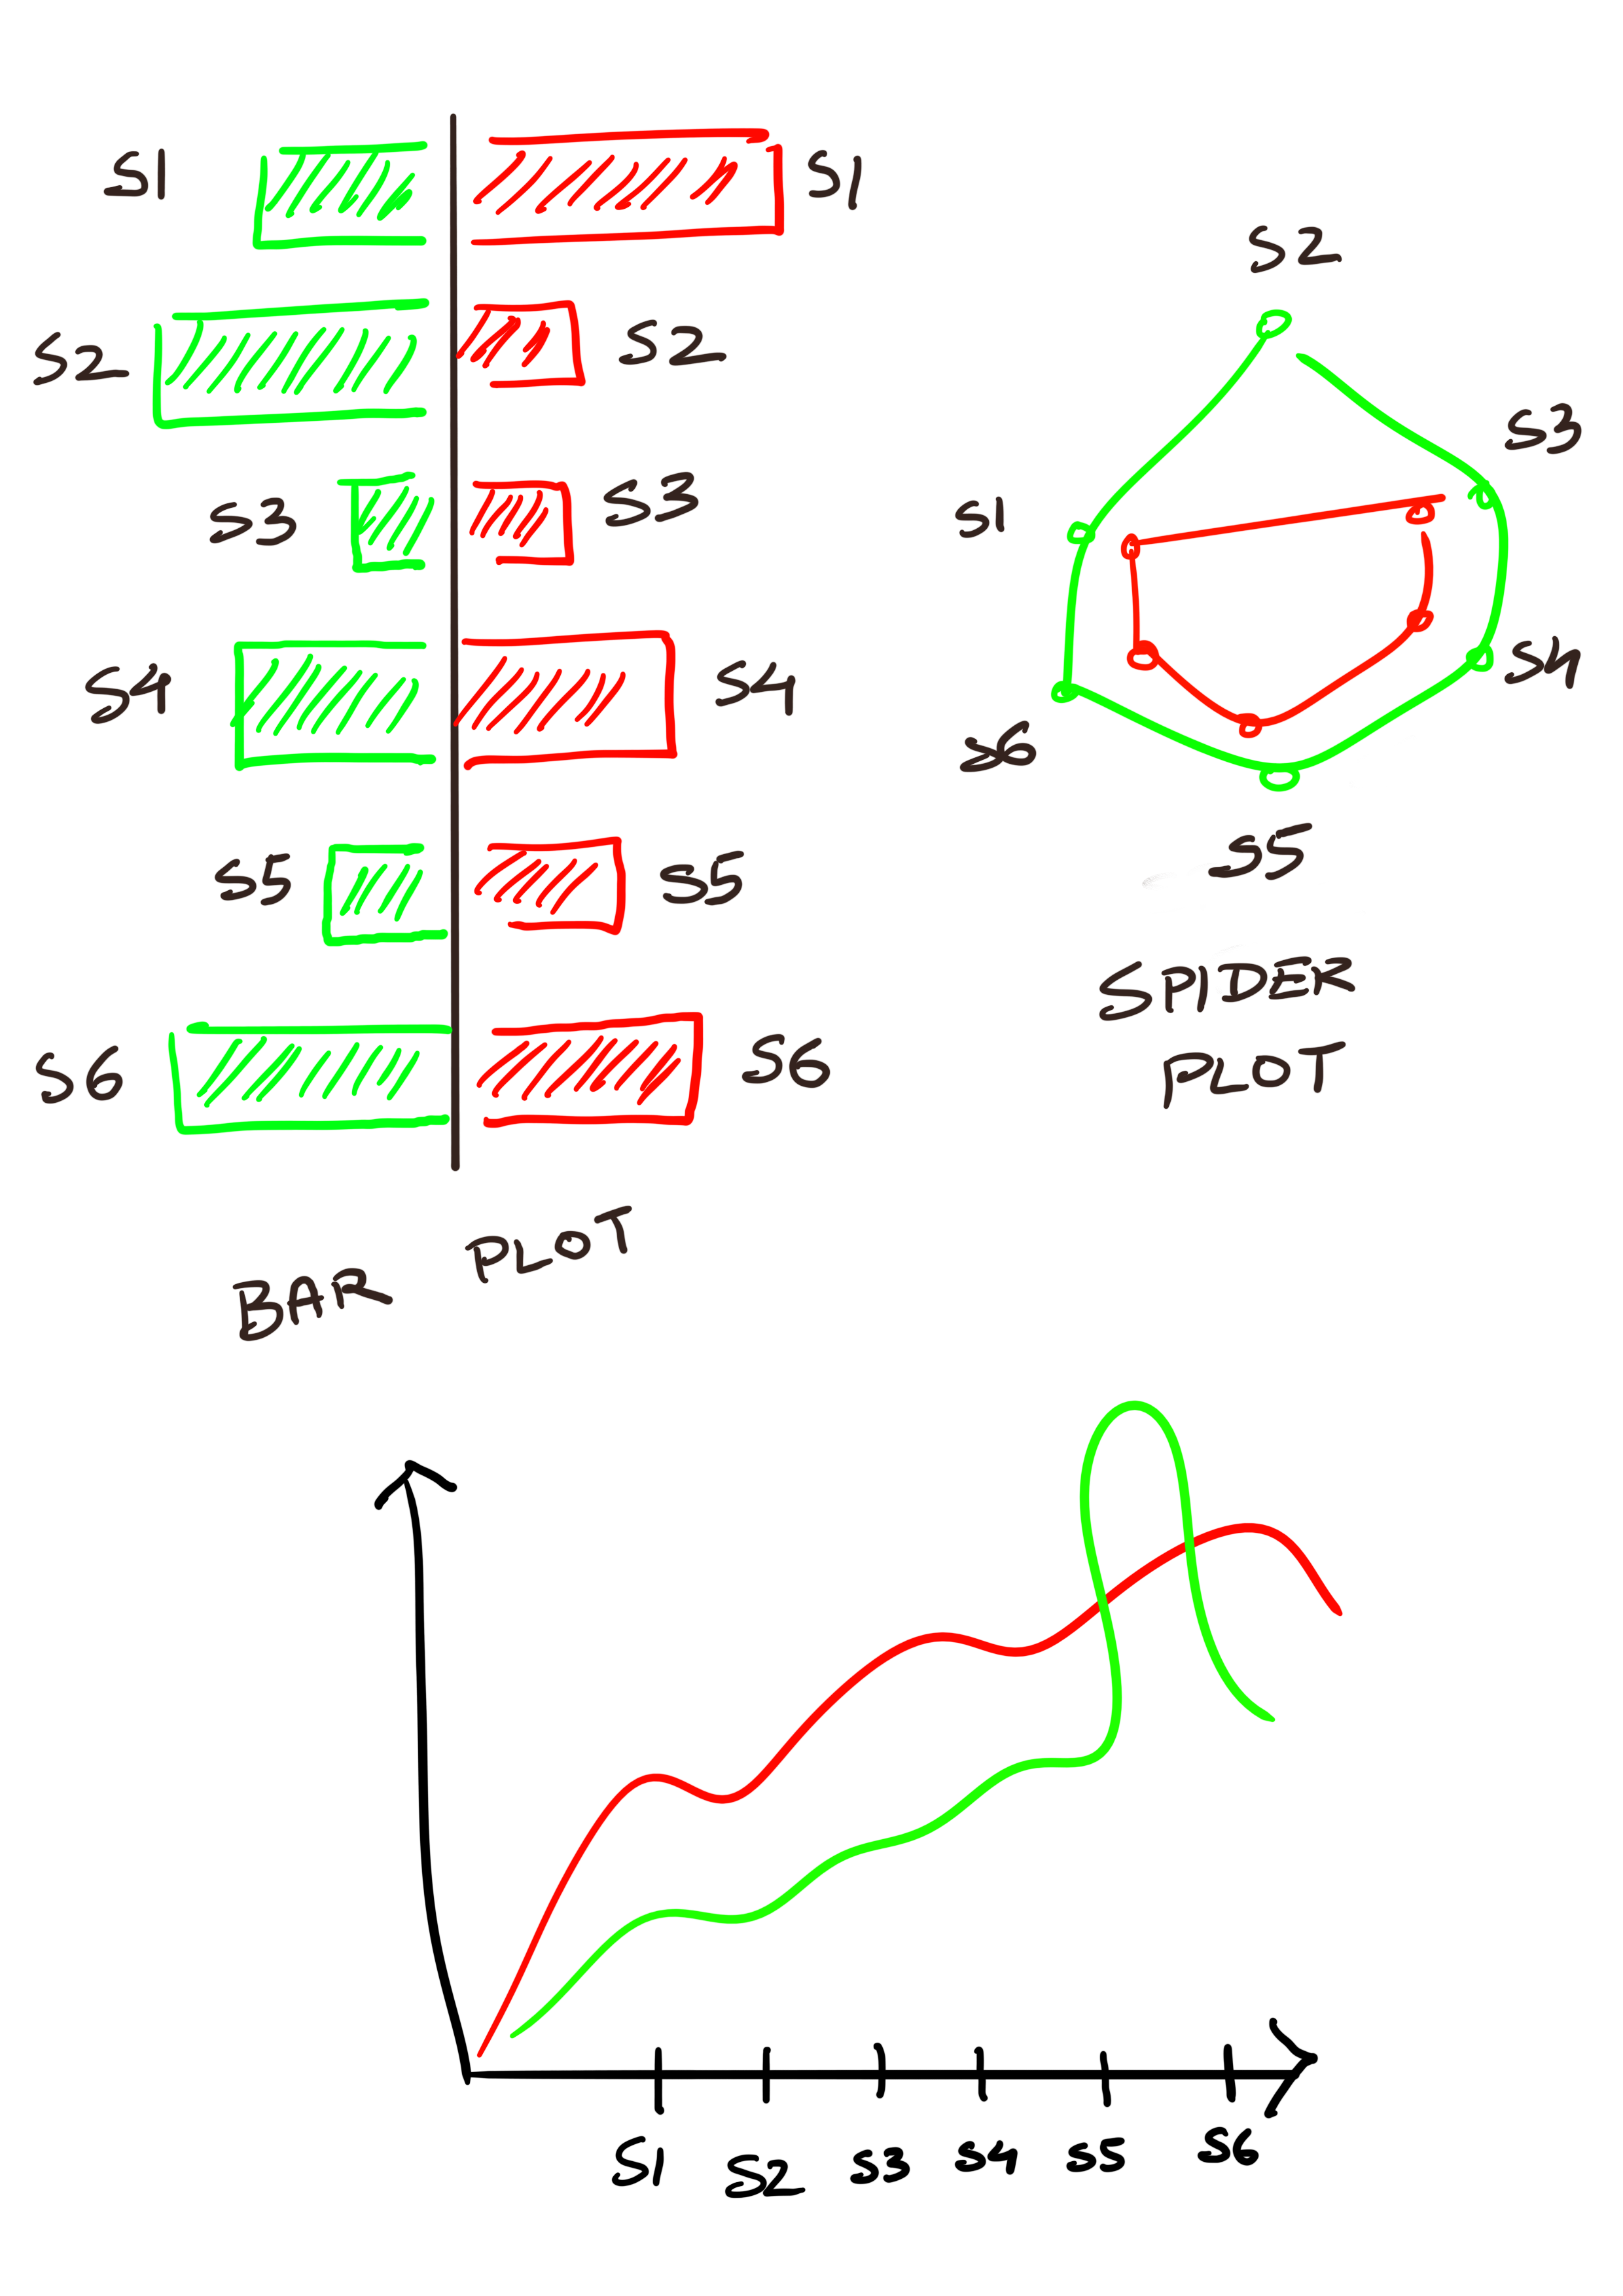 S1 S1
S2 S2
S3 S3
S4 S4
S5 S5
S6 S6
BAR PLOT
S2
S3
S1
S4
S6
S5
SPIDER
PLOT
S1 S2 S3 S4 S5 S6